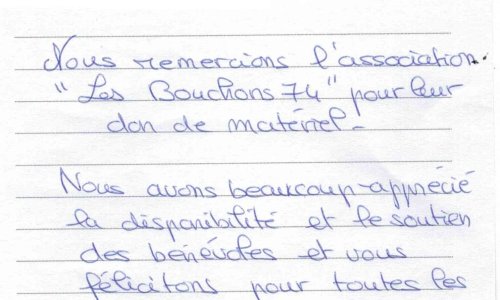 Nous remercions l'association.
"Les Bouchons 74" pour leur
don de matériel.
Nous avons beaucoup apprécié
la disponibilité et le soutien
des bénévoles et vous
félicitons pour toutes les